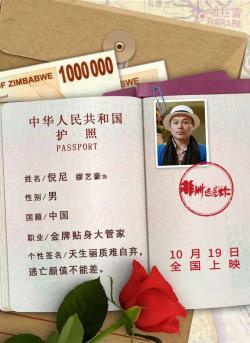 哈拉雷
HARARE
OF ZIMBABWE
1000000
中华人民共和国
护 照
PASSPORT
姓名/倪尼 缪艺豪饰
性别/男
国籍/中国
职业/金牌贴身大管家
个性签名/天生丽质难自弃，
逃亡颜值不能差。
10月19日
全国上映